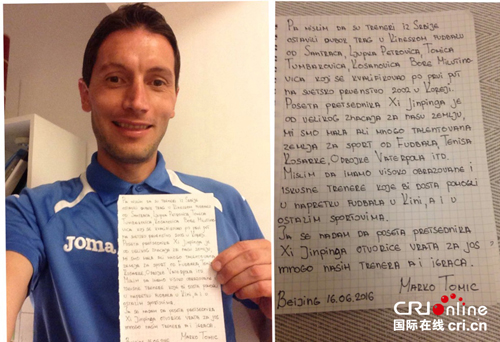 joma
Pa mislim da su treneri iz Srbije
ostavili dubok trag u kineskom fudbalu
od Santrača, Ljupka Petrovića, Tonića
Tumbakovića, Kosanovića, Bore Milutino-
vića koji se kvalifikovao po prvi put
na svetsko prvenstvo 2002 u Koreji.
Poseta pretsednika Xi Jinpinga je
od velikog značaja za našu zemlju,
mi smo mala ali mnogo talentovana
zemlja za sport od fudbala, tenisa
košarke, odbojke vaterpola itd.
Mislim da imamo visoko obrazovane i
iskusne trenere koje bi dosta pomogli
u napretku fudbala u Kini, a i u
ostalim sportovima.
Ja se nadam da poseta pretsednika
Xi Jinpinga otvoriće vrata za još
mnogo naših trenera a i igrača.
Marko Tomić
Beijing 16.06.2016
CRIonline
国际在线 cri.cn